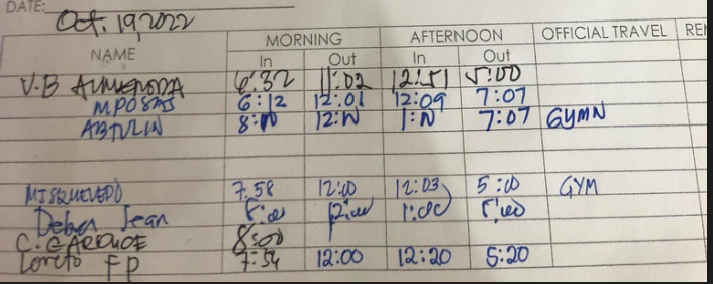 DATE: Oct. 19, 2022
NAME MORNING AFTERNOON OFFICIAL TRAVEL REM
In Out In Out
V.B 6:32 11:02 12:51 5:00
MPOSAS 6:12 12:01 12:09 7:07
ABTULIN 8:N 12:N 1:N 7:07 GYMN
MISQUEVEDO 7:58 12:00 12:03 5:00 GYM
Jean 1:00
C. 8:00
Loreto FP 7:54 12:00 12:20 5:20